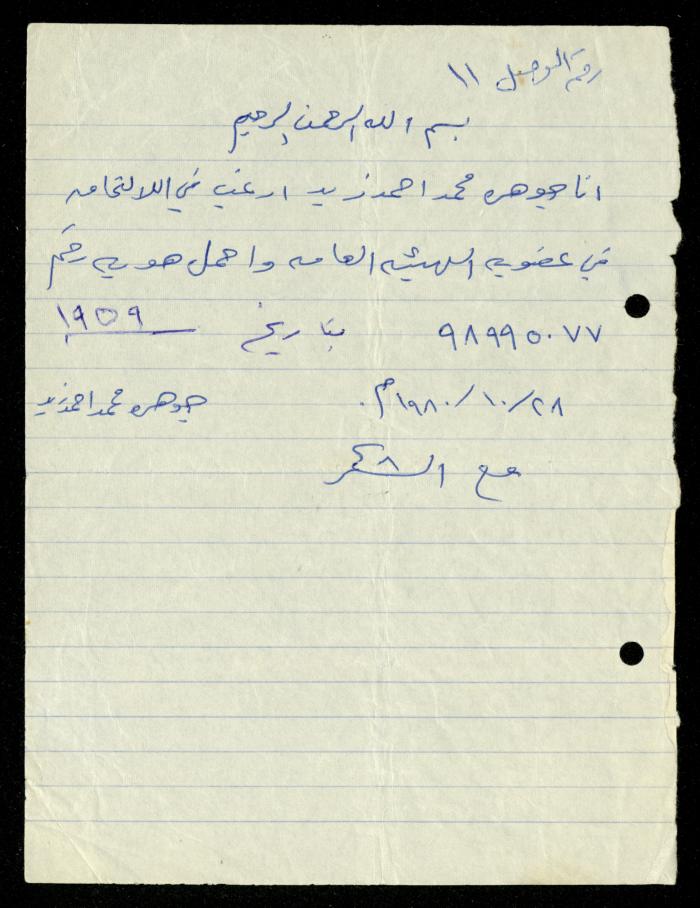 رقم الوصل ١١
بسم الله الرحمن الرحيم
انا جوهره محمد احمد زيد ارغب في اللالتحاق
في عضويه الهيئه العامه واحمل هويه رقم
٩٨٩٩٥٠٧٧ بتاريخ ١٩٥٩
٢٨/١٠/١٩٨٠م. جوهره محمد احمد زيد
مع الشكر